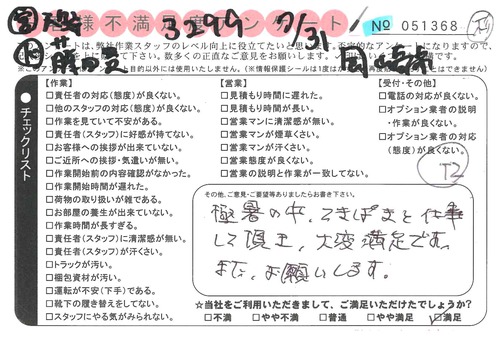 お客様不満足度アンケート
3299 7/31
№ 051368
アンケートは、弊社作業スタッフのレベル向上に役立てたいと思い
数多くの正直なご意見をお願いします。
目的以外には使用いたしません。(情報保護シールは1度は
チェックリスト
【作業】
□責任者の対応(態度)が良くない。
□他のスタッフの対応(態度)が良くない。
□作業を見ていて不安がある。
□責任者(スタッフ)に好感が持てない。
□お客様への挨拶が出来ていない。
□ご近所への挨拶・気遣いが無い。
□作業開始前の内容確認がなかった。
□作業開始時間が遅れた。
□荷物の取り扱いが雑である。
□お部屋の養生が出来ていない。
□作業時間が長すぎる。
□責任者(スタッフ)に清潔感が無い。
□責任者(スタッフ)が汗くさい。
□トラックが汚い。
□梱包資材が汚い。
□運転が不安(下手)である。
□靴下の履き替えをしてない。
□スタッフにやる気がみられない。
【営業】
□見積もり時間に遅れた。
□見積もり時間が長い。
□営業マンに清潔感が無い。
□営業マンが煙草くさい。
□営業マンが汗くさい。
□営業態度が良くない。
□営業の説明と作業が一致してない。
【受付・その他】
□電話の対応が良くない。
□オプション業者の説明
・作業が良くない。
□オプション業者の対応
(態度)が良くない。
その他、ご意見・ご要望等ありましたらお書き下さい。
極暑の中、てきぱきと仕事
して頂き、大変満足です。
また、お願いします。
☆当社をご利用いただきまして、ご満足いただけたでしょうか?
□不満 □やや不満 □普通 □やや満足 ☑満足